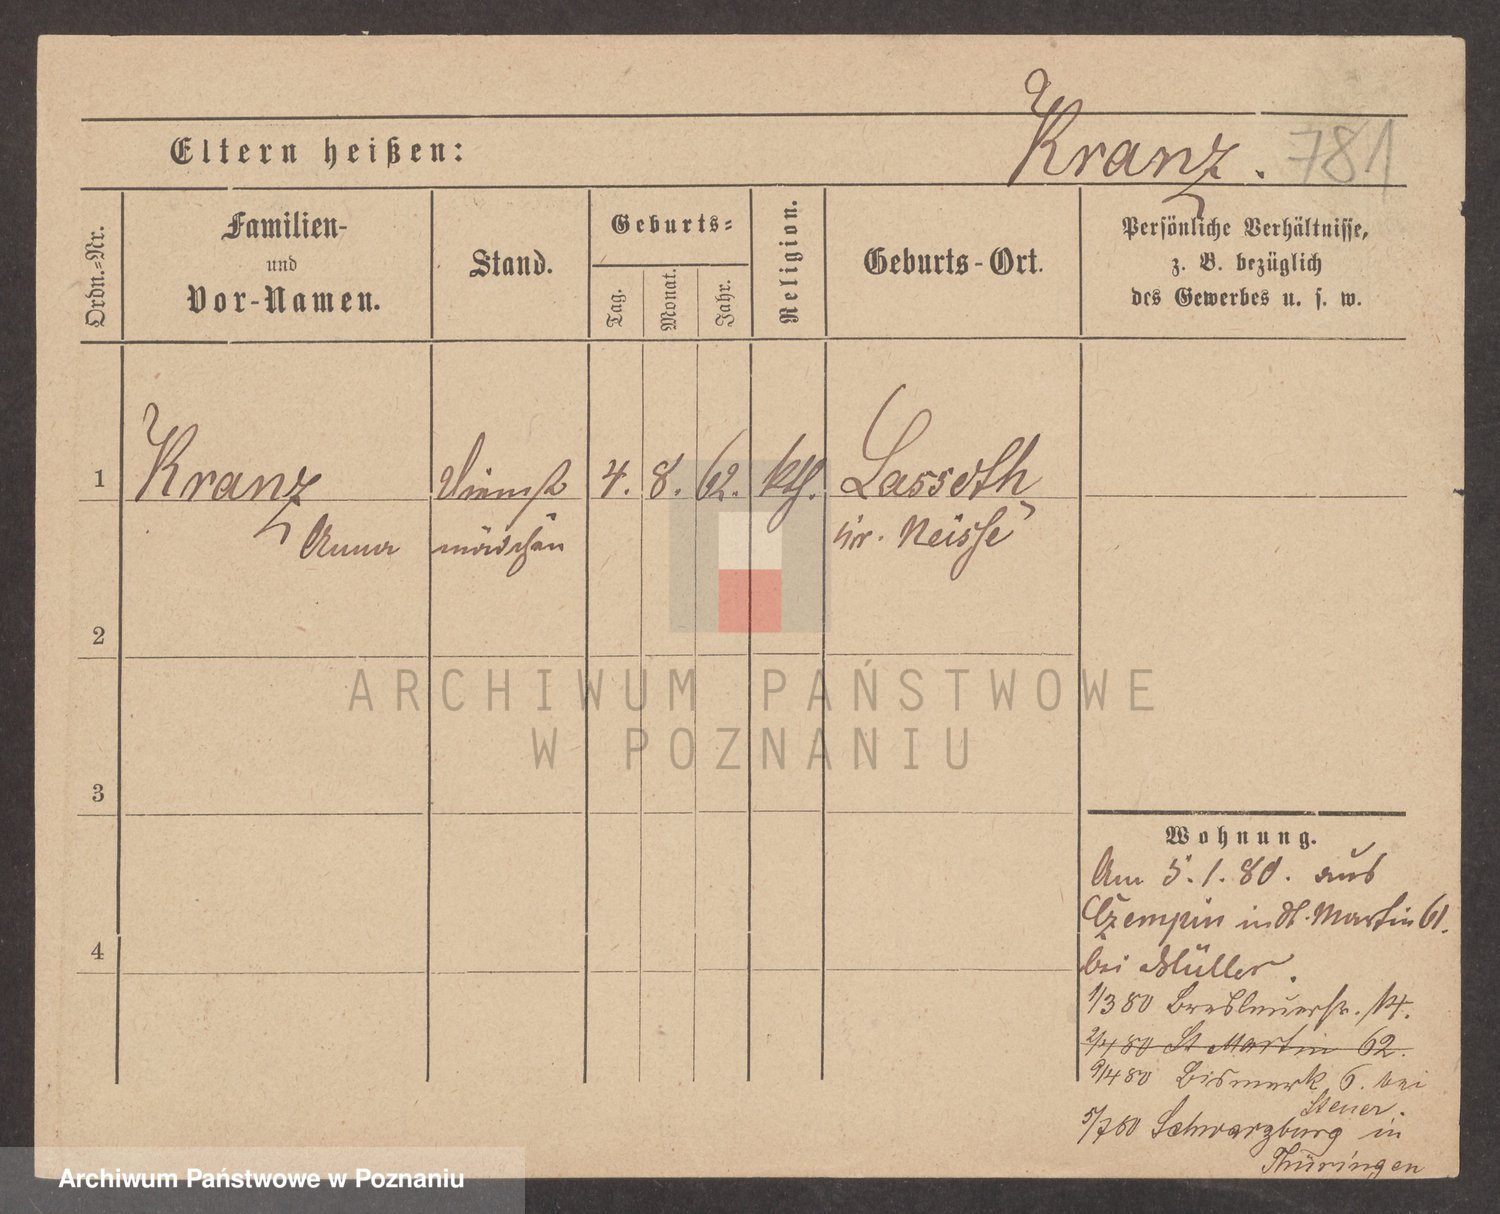 Kranz. 781
Eltern heißen:
Ordn.-Nr.
Familien-
und
Vor-Namen.
Stand.
Geburts-
Tag.
Monat.
Jahr.
Religion.
Geburts-Ort.
Persönliche Verhältnisse,
z. B. bezüglich
des Gewerbes u. s. w.
1 Kranz Dienst 4. 8. 62. kth. Lassoth
Anna mädchen Kr. Neisse
2
3
4
ARCHIWUM PAŃSTWOWE
W POZNANIU
Wohnung.
Am 5.1.80. aus
Czempin in St. Martin 61.
bei Müller.
1/3 80 Breslauerstr. 14.
2/4 80 St Martin 62.
9/4 80 Bismark 6. bei
Steuer.
5/7 80 Schwarzburg in
Thüringen
Archiwum Państwowe w Poznaniu